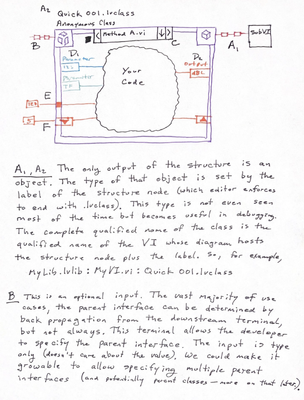 A2 Quick 001.lvclass
Anonymous Class
B
Method A.vi
C
A1
SubVI
D1
Parameter
Parameter
TF
Your
Code
D2
Output
DBL
E
F
A1, A2 The only output of the structure is an
object. The type of that object is set by the
label of the structure node (which editor enforces
to end with .lvclass). This type is not even seen
most of the time but becomes useful in debugging.
The complete qualified name of the class is the
qualified name of the VI whose diagram hosts
the structure node plus the label. So, for example,
MyLib.lvlib : MyVI.vi : Quick 001.lvclass
B This is an optional input. The vast majority of use
cases, the parent interface can be determined by
back propagation from the downstream terminal,
but not always. This terminal allows the developer
to specify the parent interface. The input is type
only (doesn't care about the value). We could make it
growable to allow specifying multiple parent
interfaces (and potentially parent classes — more on that later).